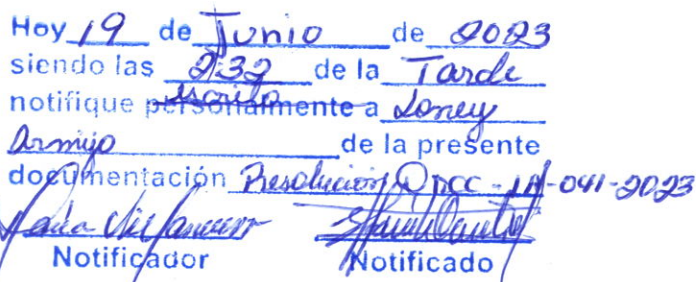 Hoy 19 de Junio de 2023
siendo las 2:32 de la Tarde
escrito
notifique personalmente a Loney
Armijo de la presente
documentación Resolución DNCC-IA-041-2023
Notificador Notificado